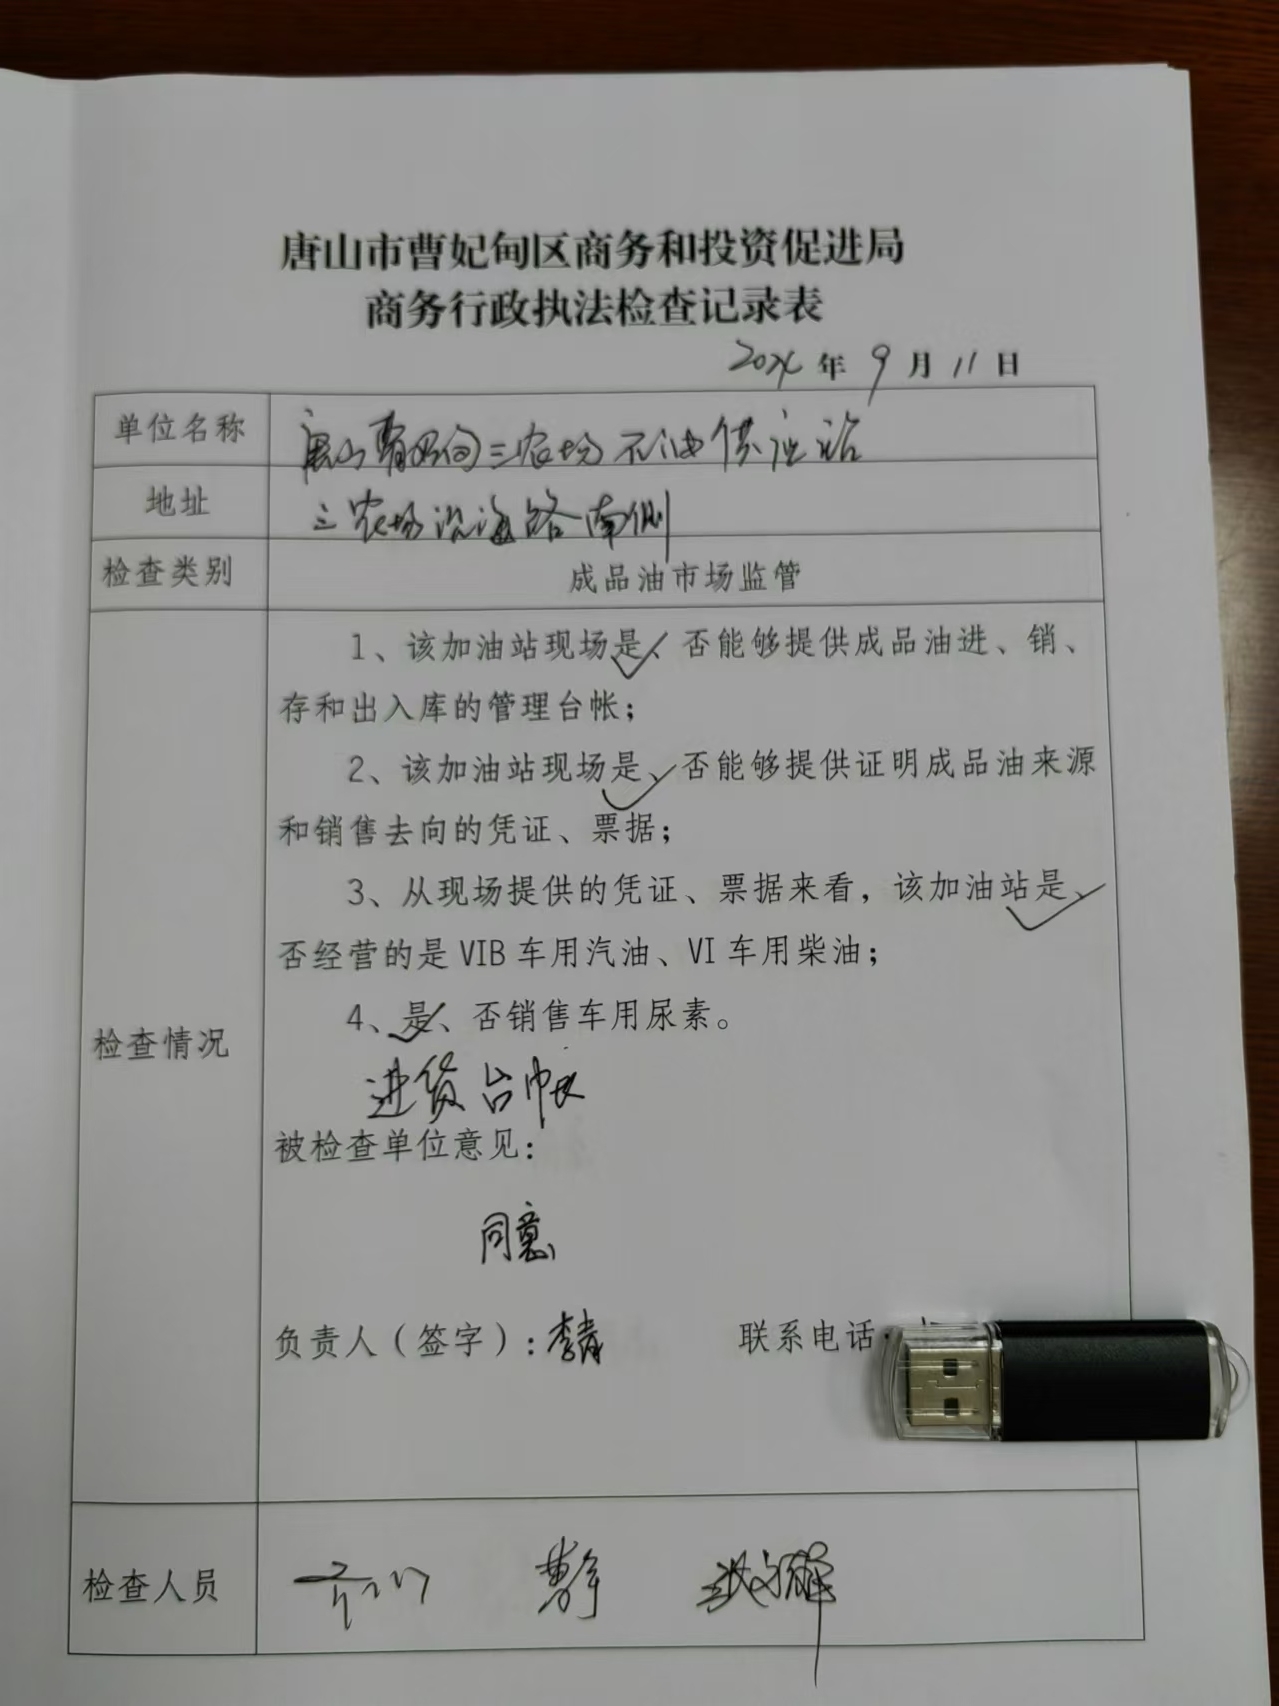 唐山市曹妃甸区商务和投资促进局
商务行政执法检查记录表
年 9 月 11 日
单位名称 唐山曹妃甸三农场石油供应站
地址 三农场沿海路南侧
检查类别 成品油市场监管
1、该加油站现场是、否能够提供成品油进、销、
存和出入库的管理台帐；
2、该加油站现场是、否能够提供证明成品油来源
和销售去向的凭证、票据；
3、从现场提供的凭证、票据来看，该加油站是、
否经营的是 VIB 车用汽油、VI 车用柴油；
检查情况
4、是、否销售车用尿素。
进货台帐
被检查单位意见：
同意
负责人（签字）：李青 联系电话
检查人员